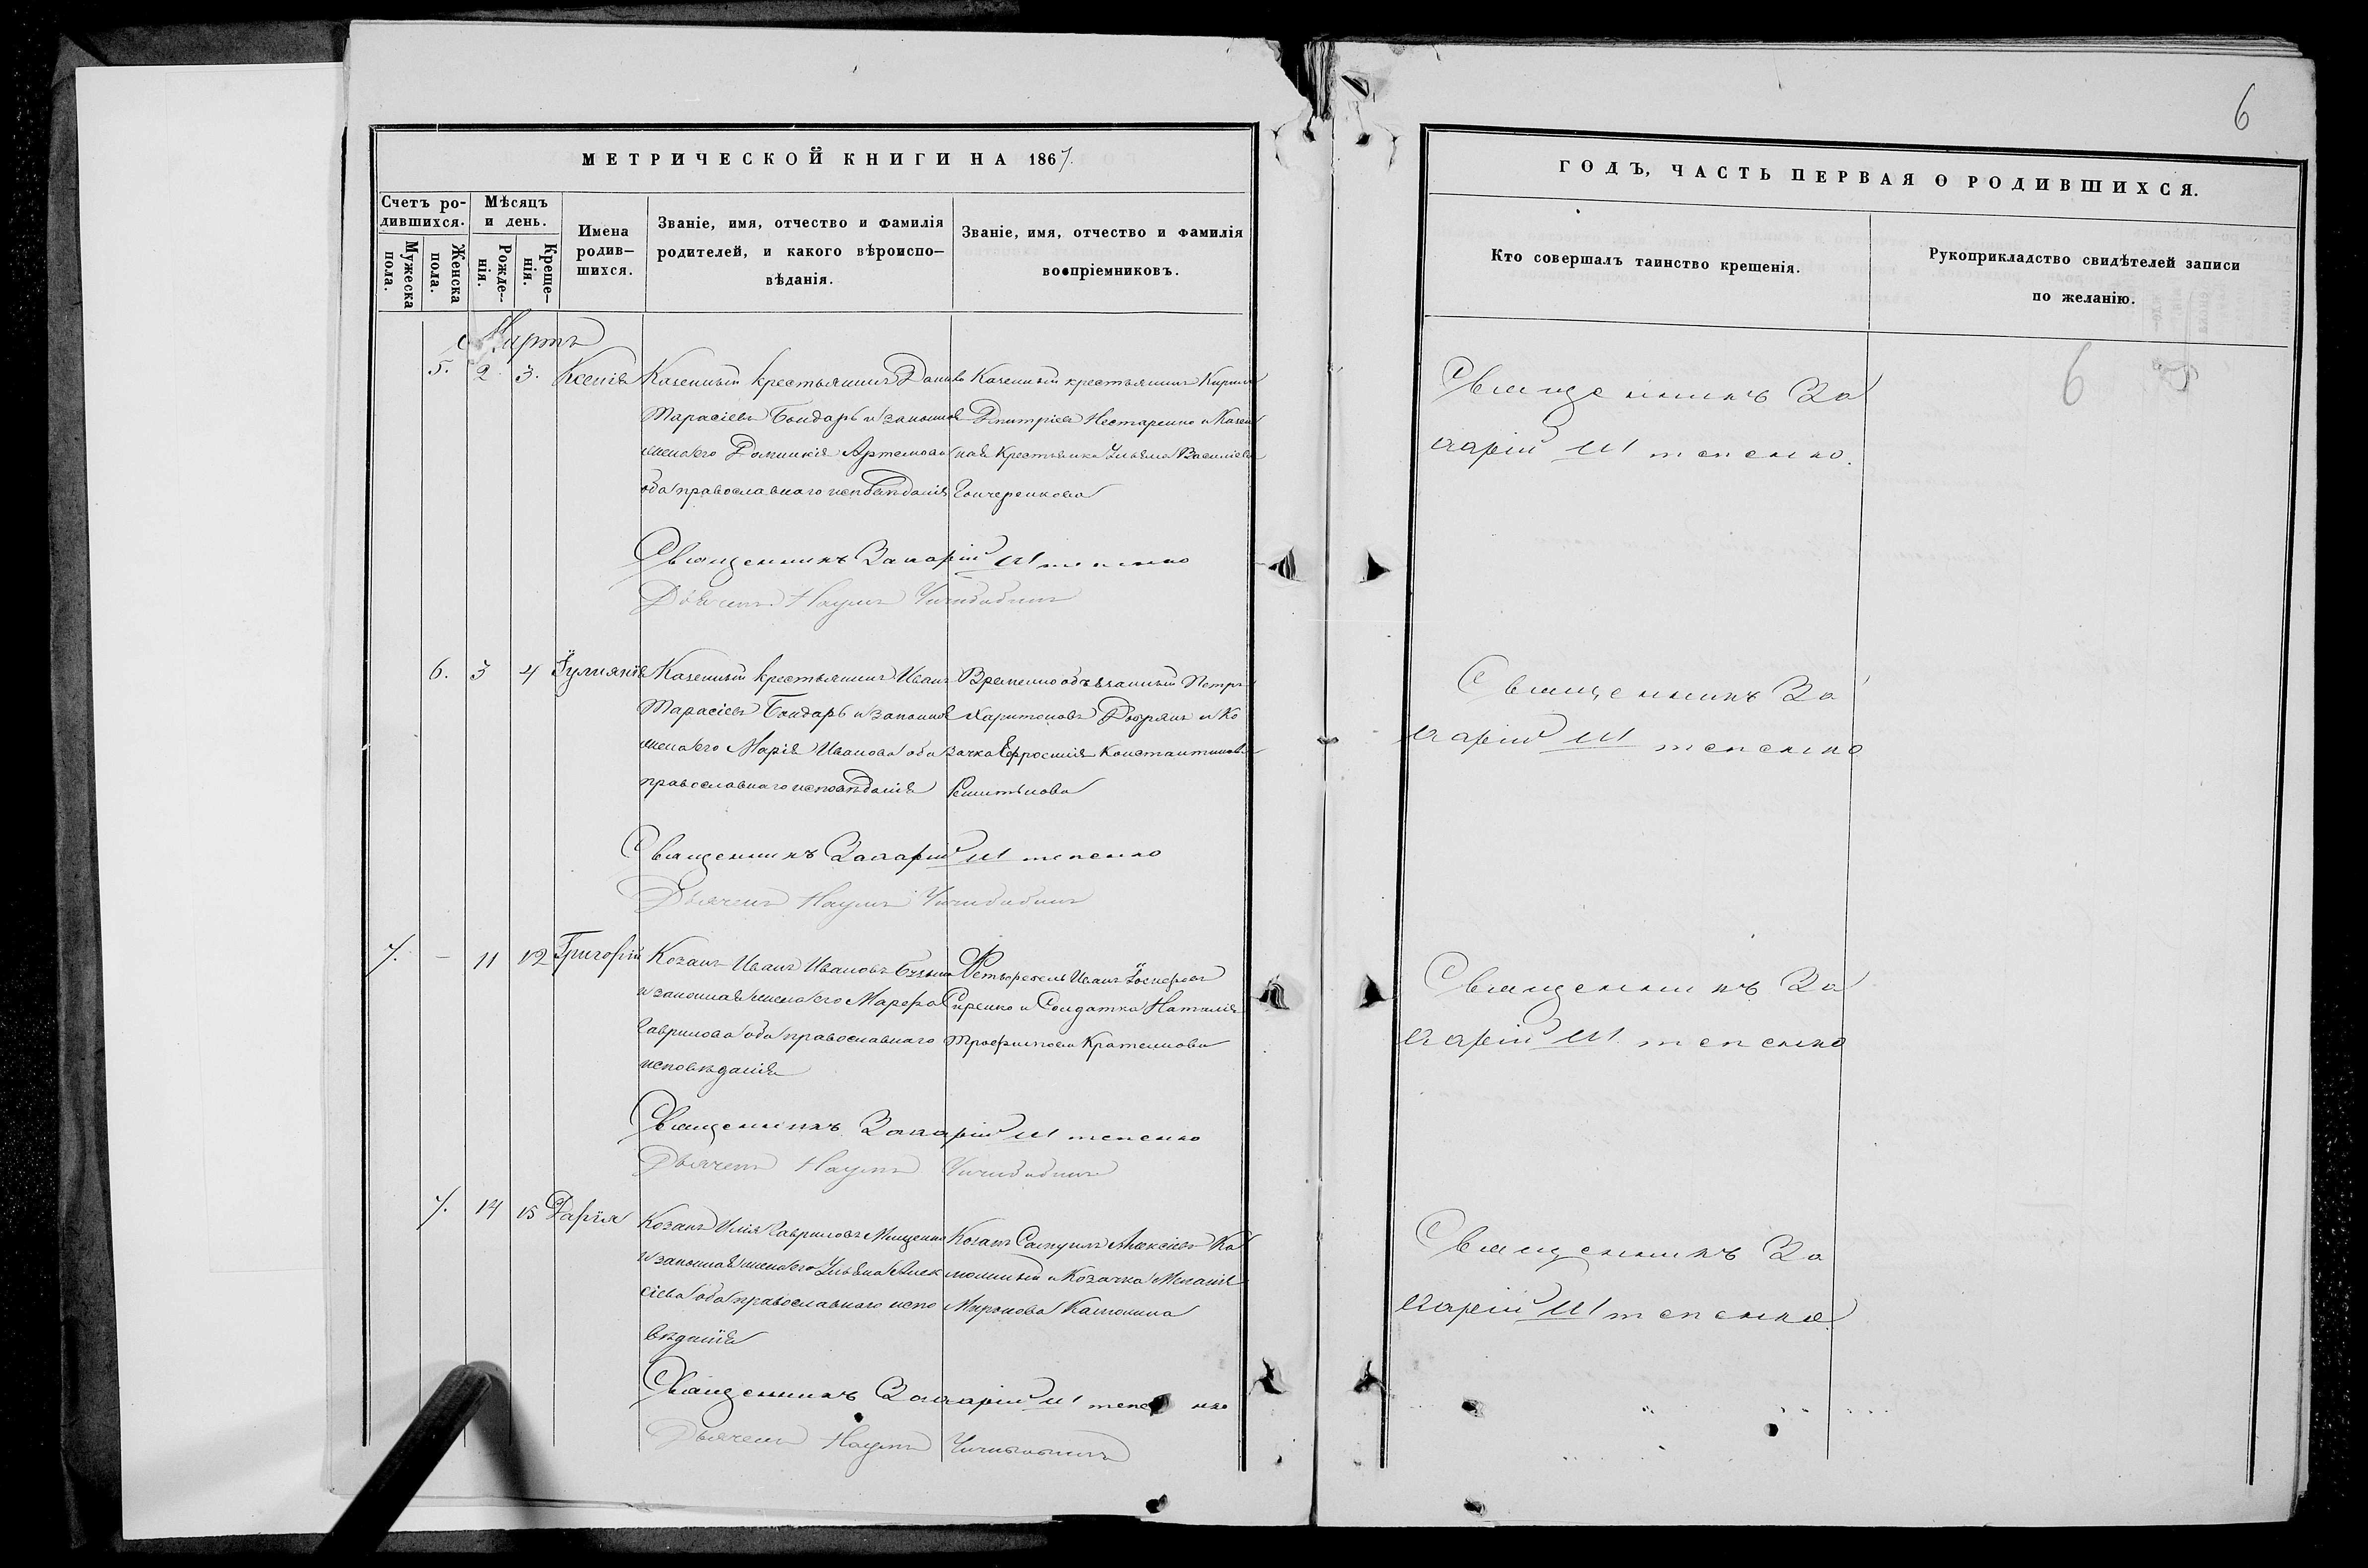 МЕТРИЧЕСКОЙ КНИГИ НА 1867.
Счетъ родившихся.
Мужеска пола.
Женска пола.
Мѣсяцъ и день.
Рожденія.
Крещенія.
Имена родившихся.
Званіе, имя, отчество и фамилія родителей, и какого вѣроисповѣданія.
Званіе, имя, отчество и фамилія воспріемниковъ.
Мартъ
5. 2 3. Ксенія
Казенный крестьянинъ Данило
Тарасіевъ Бондарь и законная
жена его Домникія Артемова
оба православнаго исповѣданія
Казенный крестьянинъ Кирилъ
Дмитріевъ Нестеренко и Казен
ная Крестьянка Ульяна Василіева
Гончеренкова
Священникъ Захарій Штепенко
Дьячекъ Наумъ
6. 3 4 Іуліанія
Казенный крестьянинъ Иванъ
Тарасіевъ Бондарь и законная
жена его Марія Иванова оба
православнаго исповѣданія
Временнообязанный Петръ
Харитоновъ и Ко
зачка Ефросинія Константинова
Священникъ Захарій Штепенко
Дьячекъ Наумъ
7. – 11 12 Григорій
Козакъ Иванъ Ивановъ
и законная жена его Марфа
Гаврилова оба православнаго
исповѣданія
Иванъ Іосифовъ
Сиренко и Солдатка Наталія
Трофимова
Священникъ Захарій Штепенко
Дьячекъ Наумъ
7. 14 15 Дарія
Козакъ Илія Гавриловъ Мищенко
и законная жена его Ульяна Алек
сіева оба православнаго испо
вѣданія
Козакъ Самуилъ Алексіевъ Ка
и Козачка Меланія
Миронова
Священникъ Захарій Штепенко
Дьячекъ Наумъ
6
ГОДЪ, ЧАСТЬ ПЕРВАЯ О РОДИВШИХСЯ.
Кто совершалъ таинство крещенія.
Рукоприкладство свидѣтелей записи по желанію.
6
Священникъ За
харій Штепенко.
Священникъ За
харій Штепенко
Священникъ За
харій Штепенко
Священникъ За
харій Штепенко